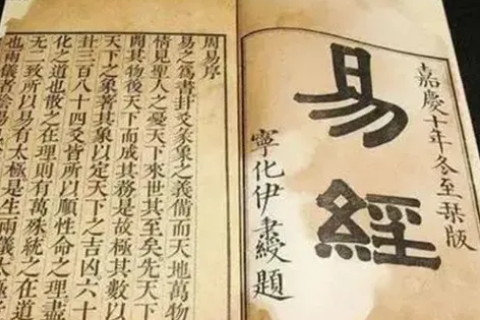 嘉慶十年冬至栞版
易經
寧化伊秉綬題
周易序
易之爲書卦爻彖象之義備而天地萬物
情見聖人之憂天下來世其至矣先天下
開其物後天下而成其務是故極其數以
天下之象著其象以定天下之吉凶六十
卦三百八十四爻皆所以順性命之理盡
化之道也散之在理則有萬殊統之在道
无二致所以易有太極是生兩儀太極
也兩儀者陰陽也